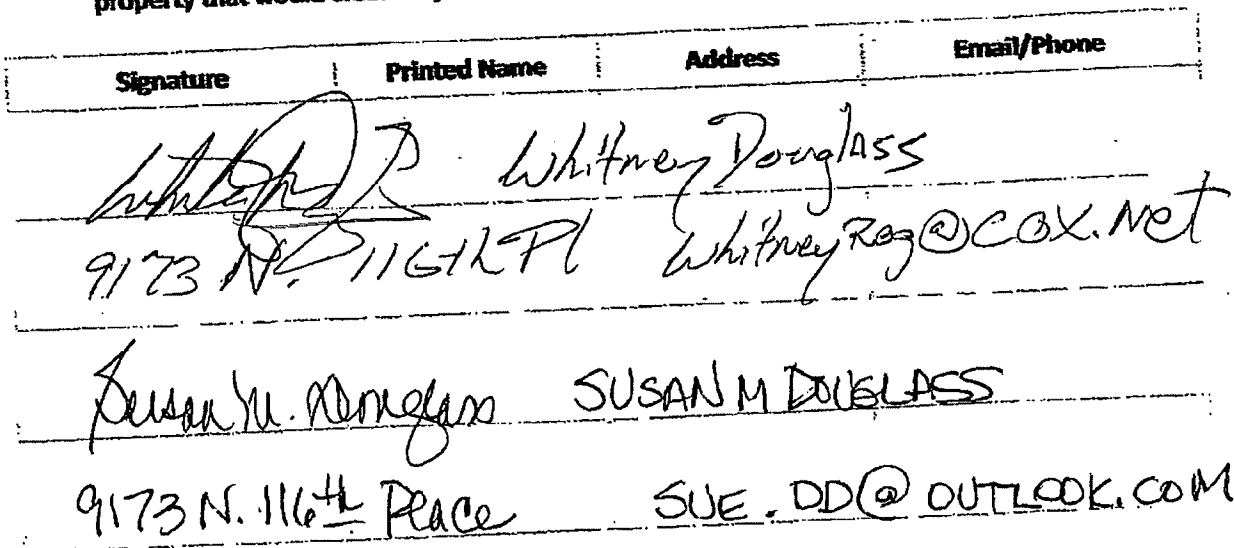 property that would
Signature Printed Name Address Email/Phone
Whitney Douglass
9173 N. 116th Pl WhitneyRog@COX.Net
Susan M. Douglass SUSAN M DOUGLASS
9173 N. 116th Place SUE.DD@OUTLOOK.COM